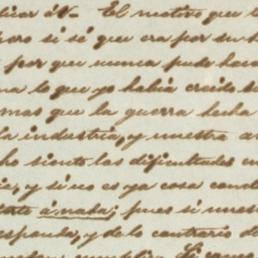 dicar á V. El motivo que
pero si sé que era por su
por que nunca pude hace
a lo que yo habia creido s
mas que la guerra hecha
la industria, y nuestra a
ho siente las dificultades en
y si no es ya cosa conc
á nada; pues si nues
esponda, y de lo contrario de